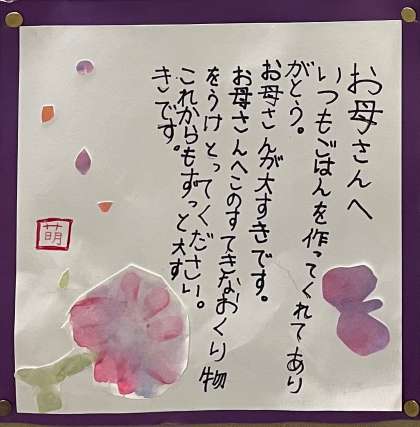 お母さんへ
いつもごはんを作ってくれてあり
がとう。
お母さんが大すきです。
お母さんへこのすてきなおくり物
をうけとってください。
これからもずっと大す
きです。
萌